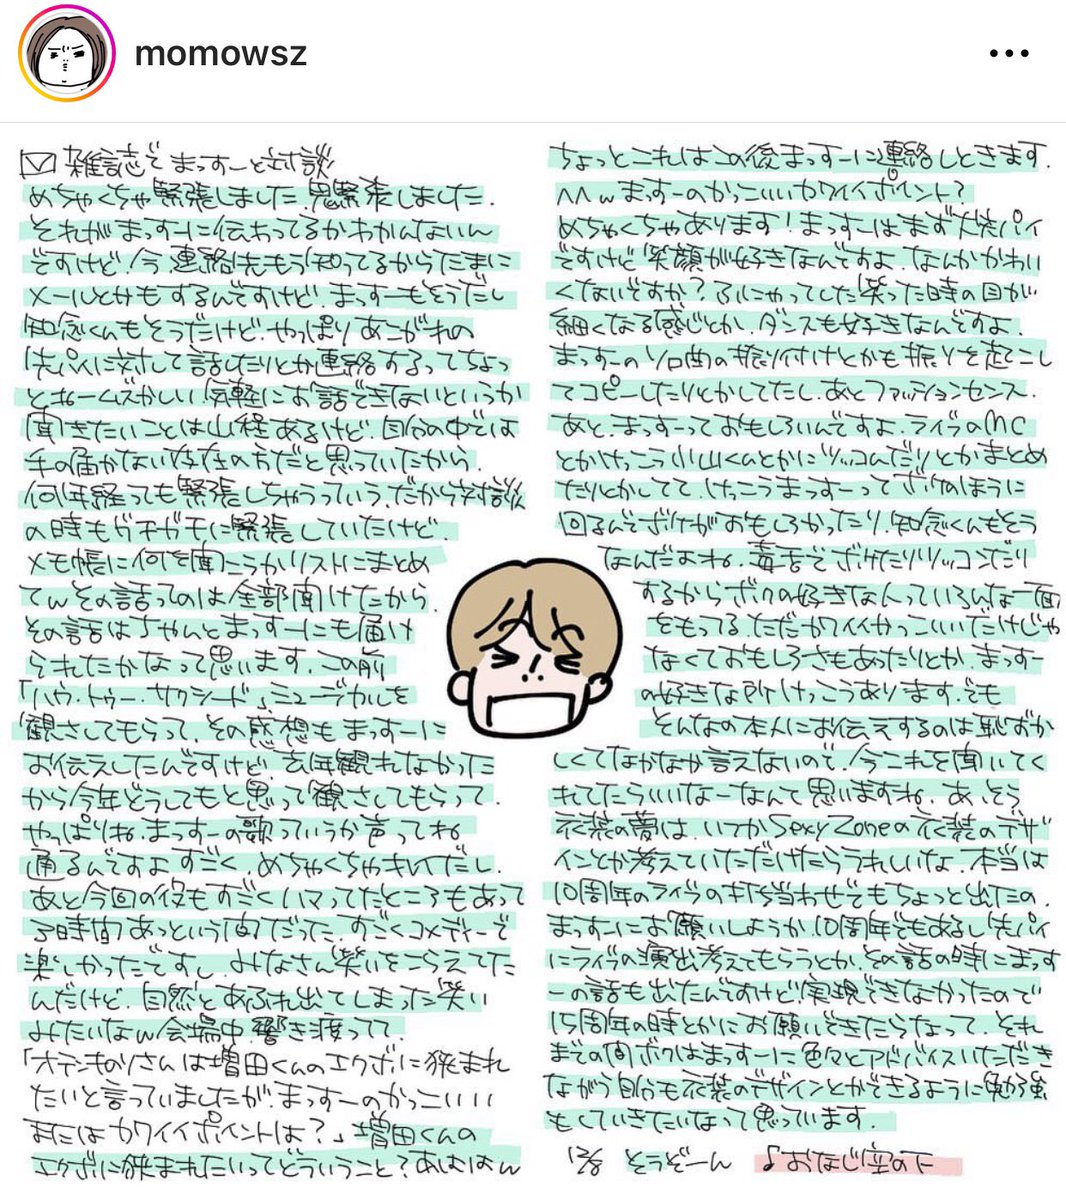 momowsz
雑誌でまっすーと対談
めちゃくちゃ緊張しました。鬼緊張しました。
それがまっすーに伝わってるかわかんないん
ですけど、今、連絡先もう知ってるからたまに
メールとかもするんですけど、まっすーもそうだし
知念くんもそうだけど、やっぱりあこがれの
先パイに対して話したりとか連絡するってちょっ
とホームズかしい気軽にお話できないというか
聞きたいことは山程あるけど、自分の中では
手の届かない存在の方だと思っていたから。
何年経っても緊張しちゃうっていう、だから対談
の時もガチガチに緊張していたけど、
メモ帳に何を聞こうかリストにまとめ
てwその話ってのは全部聞けたから、
その話はちゃんとまっすーにも届け
られたかなって思います。この前
「ハウ・トゥー・サクシード」ミュージカルを
観させてもらって、その感想もまっすーに
お伝えしたんですけど、去年観れなかった
から今年どうしてもと思って観させてもらって、
やっぱりね、まっすーの歌っていうか声ってね
通るんですよすごく、めちゃくちゃキレイだし、
あと今回の役もすごくハマってたところもあって
3時間あっという間だった。すごくコメディーで
楽しかったですし、みなさん笑いをこらえてた
んだけど、自然とあふれ出てしまった笑い
みたいなw会場中響き渡ってて、
「オテンキのりさんは増田くんのエクボに挟まれ
たいと言っていましたが、まっすーのかっこいい
またはカワイイポイントは？」増田くんの
エクボに挟まれたいってどういうこと？あはははw
ちょっとこれはこの後まっすーに連絡しときます。
ハハwまっすーのかっこいいカワイイポイント？
めちゃくちゃあります！まっすーはまず大先パイ
ですけど笑顔が好きなんですよ、なんかかわい
くないですか？ふにゃってした笑った時の目が
細くなる感じとか、ダンスも好きなんですよ、
まっすーのソロ曲の振り付けとかも振りを起こし
てコピーしたりとかしてたし、あとファッションセンス、
あと、まっすーっておもしろいんですよ、ライブのMC
とかけっこう小山くんとかにツッコんだりとかまとめ
たりとかしてて、けっこうまっすーってボケのほうに
回るんでボケがおもしろかったり、知念くんもそう
なんだよね。毒舌でボケたりツッコんだり
するからボクの好きな人っていろんな一面
をもってる、ただカワイイかっこいいだけじゃ
なくておもしろさもあったりとか、まっすー
の好きな所けっこうあります。でも
そんなの本人にお伝えするのは恥ずか
しくてなかなか言えないので、今これを聞いてく
れてたらいいなーなんて思いますね、あ、そう
衣装の夢は、いつかSexy Zoneの衣装のデザ
インとか考えていただけたらうれしいな、本当は
10周年のライブの打ち合わせでもちょっと出たの、
まっすーにお願いしようか、10周年でもあるし先パイ
にライブの演出考えてもらうとか、その話の時にまっす
ーの話も出たんですけど実現できなかったので
15周年の時とかにお願いできたらなって、それ
までの間ボクはまっすーに色々とアドバイスいただき
ながら自分も衣装のデザインとかができるように勉強
もしていきたいなって思っています。
そうぞーん ♪おなじ空の下